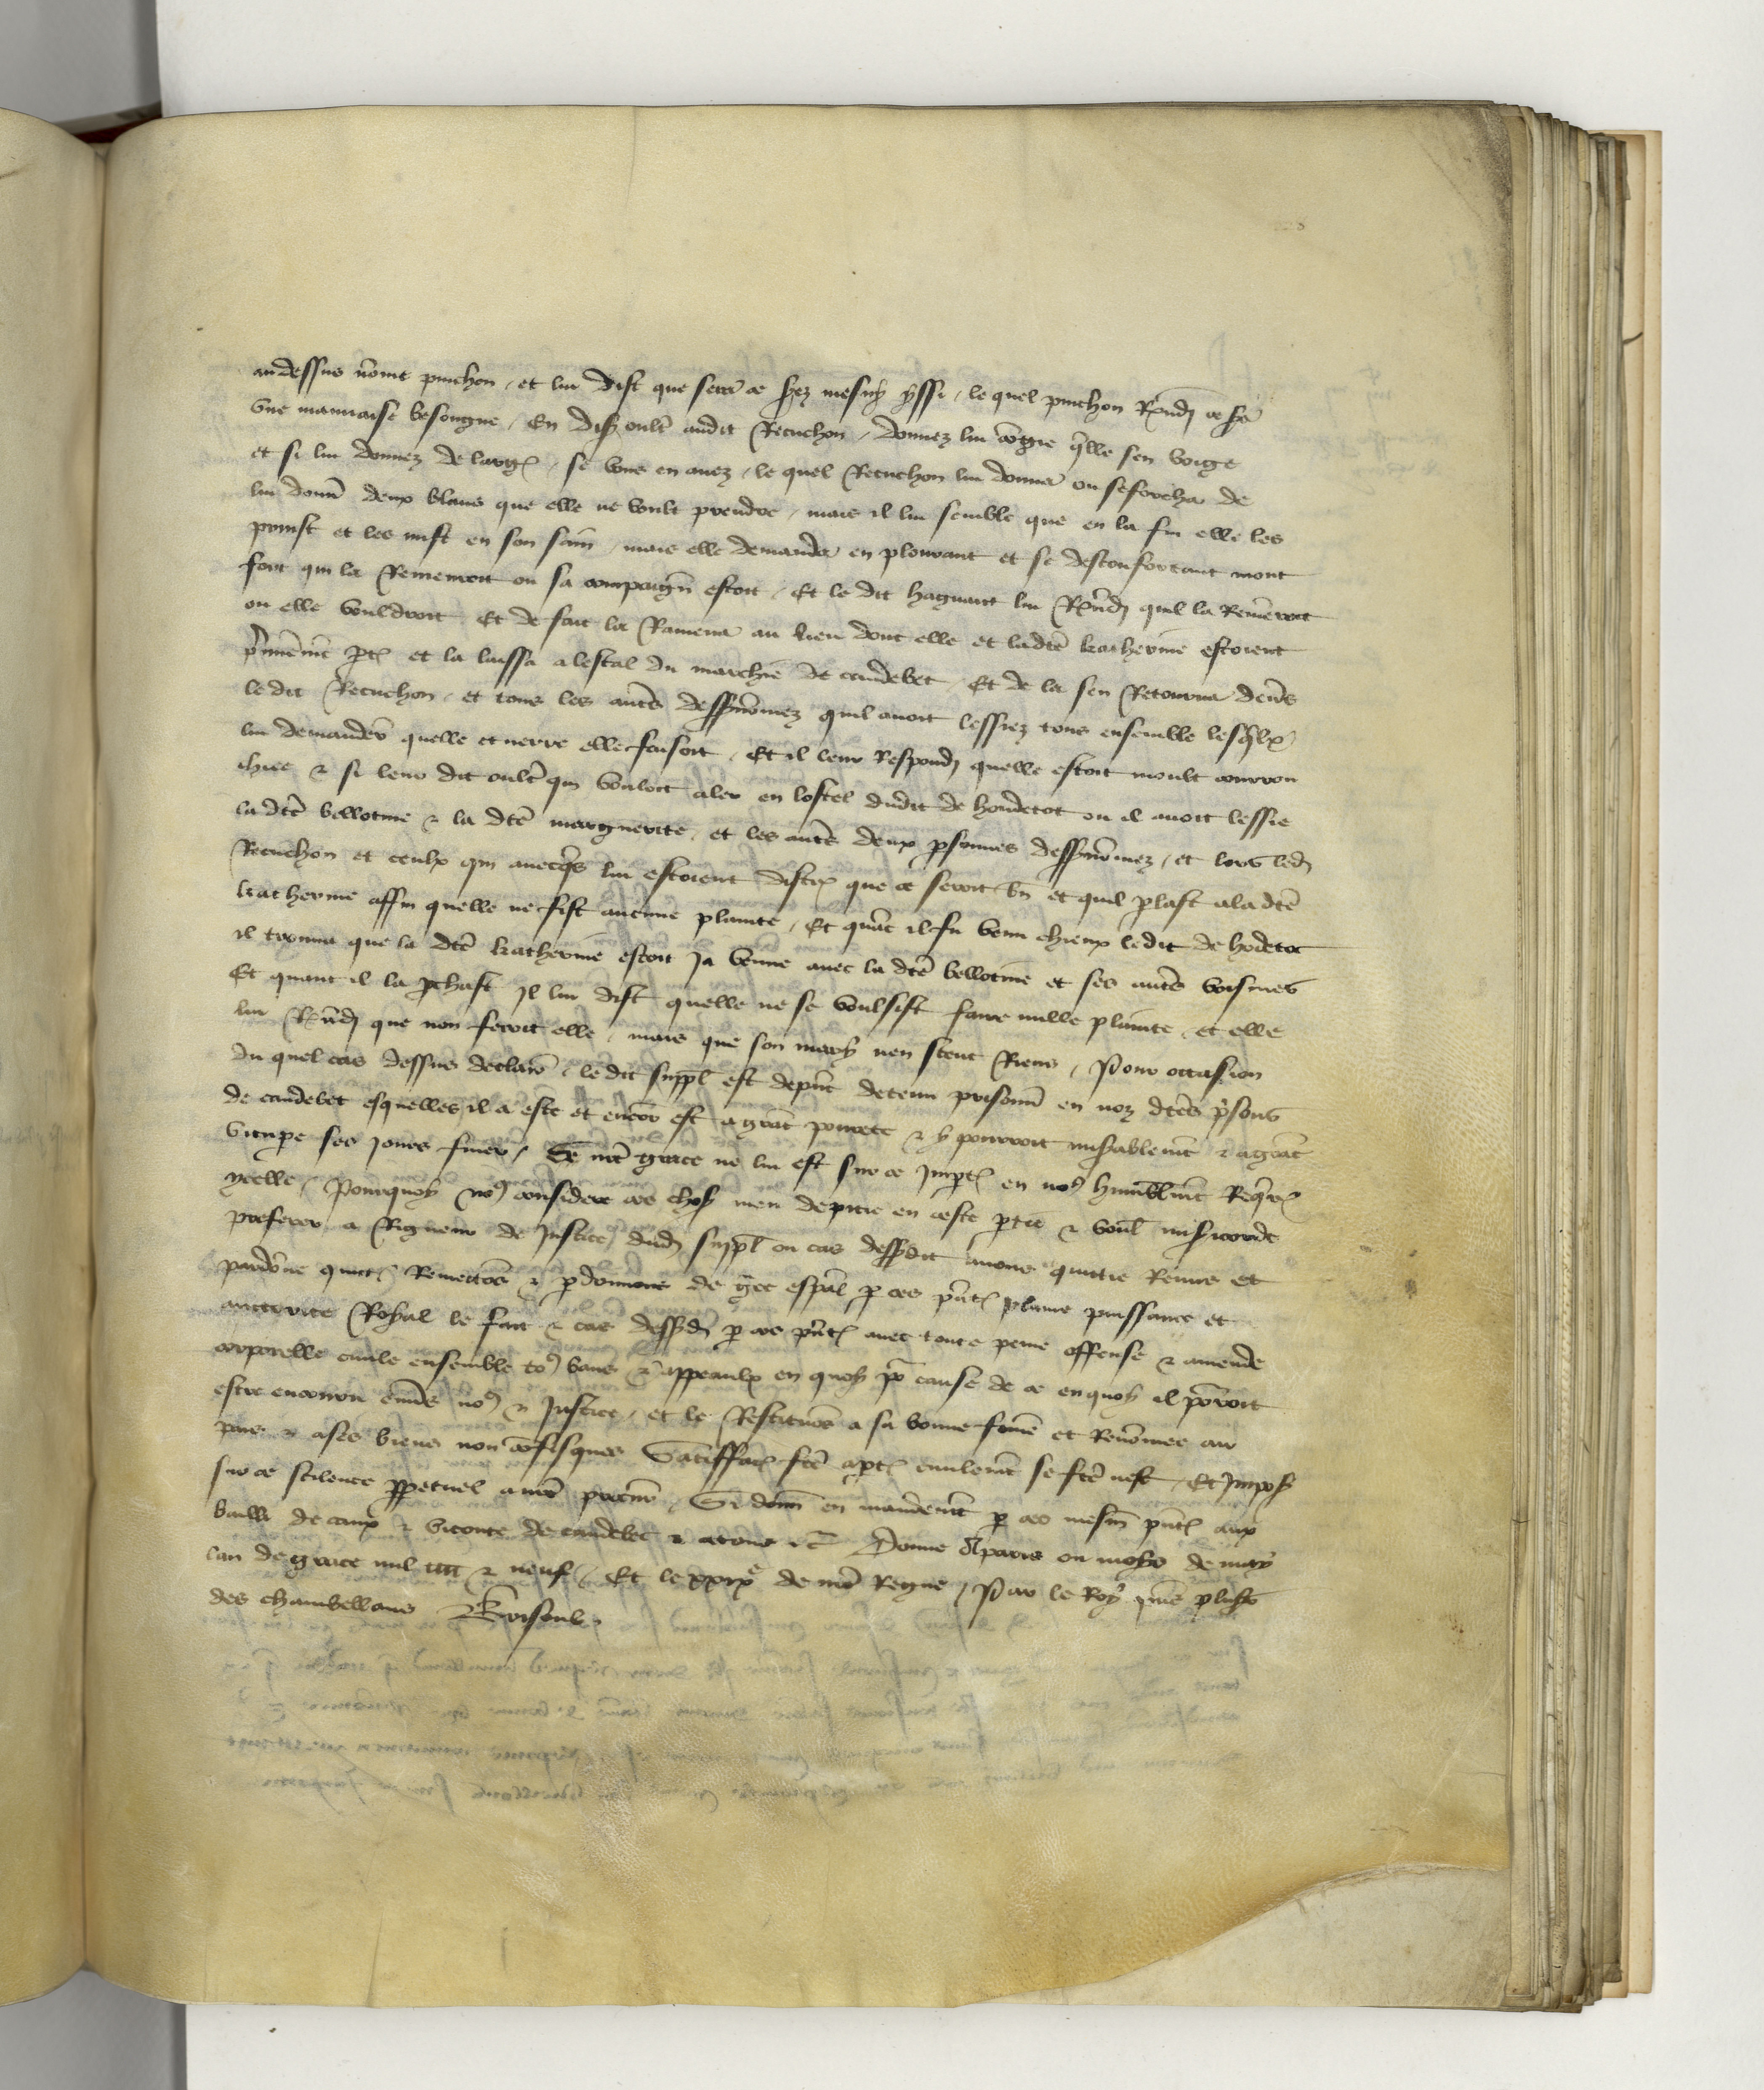 audessus nome pinchon, et lui dist que sera ce frez mesny yssi, le quel pinchon Rendi ce ser
Une mauvaise besongne, En dis oult audit Recuchon, donnez lui congie qlle sen voige
et si lui donnez de larg, se vous en avez, le quel Recuchon lui donna ou seforcha de
lui donn deux blans que elle ne voult prendre, mais il lui semble que en la fin elle les
prinst et les mist en son sain, mais elle demanda en plourant et se desconfortant mont
fort qui la Remenroit ou sa compaign estoit, Et le dit haquart lui Rendi quil la Remeroit
ou elle vouldroit Et de fait la Ramena au lieu dont elle et ladte katherine estoient
pmiemt pt et la laissa a lestal du marchie de caudebec, Et de la sen Retourna devs
le dit Recuchon, et tous les auts dessnomez quil avoit lessiez tous ensemble lesqlx
lui demander quelle chierre elle faisoit, Et il leur Respondi quelle estoit moult courrou
chiee & si leur dit oult qui vouloit aler en lostel dudit de houdetot ou il avoit lessie
la dte bellotine & la dte marguerite, et les auts deux psonnes dessnomez, et lors led
Recuchon et ceulx qui avecqs lui estoient distr que ce seroit bn et quil plast a la dte
katherine affin quelle ne fist aucune plainte, Et quat il fu venu chieux ledit de hodetot
il trouva que la dte katherine estoit ja venue avec la dte bellotine et ses auts voisines
Et quant il la pchast Il lui dist quelle ne se voulsist faire nulle plainte, et elle
lui Rendi que non feroit elle, mais que son mary nen sceut Riens, Pour occasion
du quel cas dessus declair, le dit suppl est depnt detenu prisonn en noz dtes psons
de caudebec esquelles il a este et encor est a grat povrete & y pourroit misablemt & a grat
vitupe ses jours finer, Se nre grace ne lui est sur ce Impt en nos humblemt Requer
ycelle, Pourquoy nos considere ces chos meu de pitie en ceste ptie & voul misicorde
preferer a Rigueur de Justice, dud suppl ou cas dessdit avons quittie Remis et
pardone quitt Remettons & pdonnons de gce espal p ces pnt plaine puissance et
auctorite Royal le fait & cas dessd p ces pnt avec toute peine offense & amende
corporelle civile ensemble tos bans & appeaulx en quoy p cause de ce enquoy il porroit
estre encouru envs nos & Justice, et le Restituos a sa bonne fame et Renomee au
pais & a ses biens non cofisques Satisffac fte a pt civilemt se fte nest, Et Impos
sur ce scilence ppetuel a nre procur, Si donn en mandemt p ces mesm pnt aux
bailli de caux & viconte de caudebec & a tous &c Donne A paris ou moys de may
lan de grace mil iiiic & neuf, Et le xxixe de nre Regne, Par le Roy pns plusrs
des chambellans Brisoul.